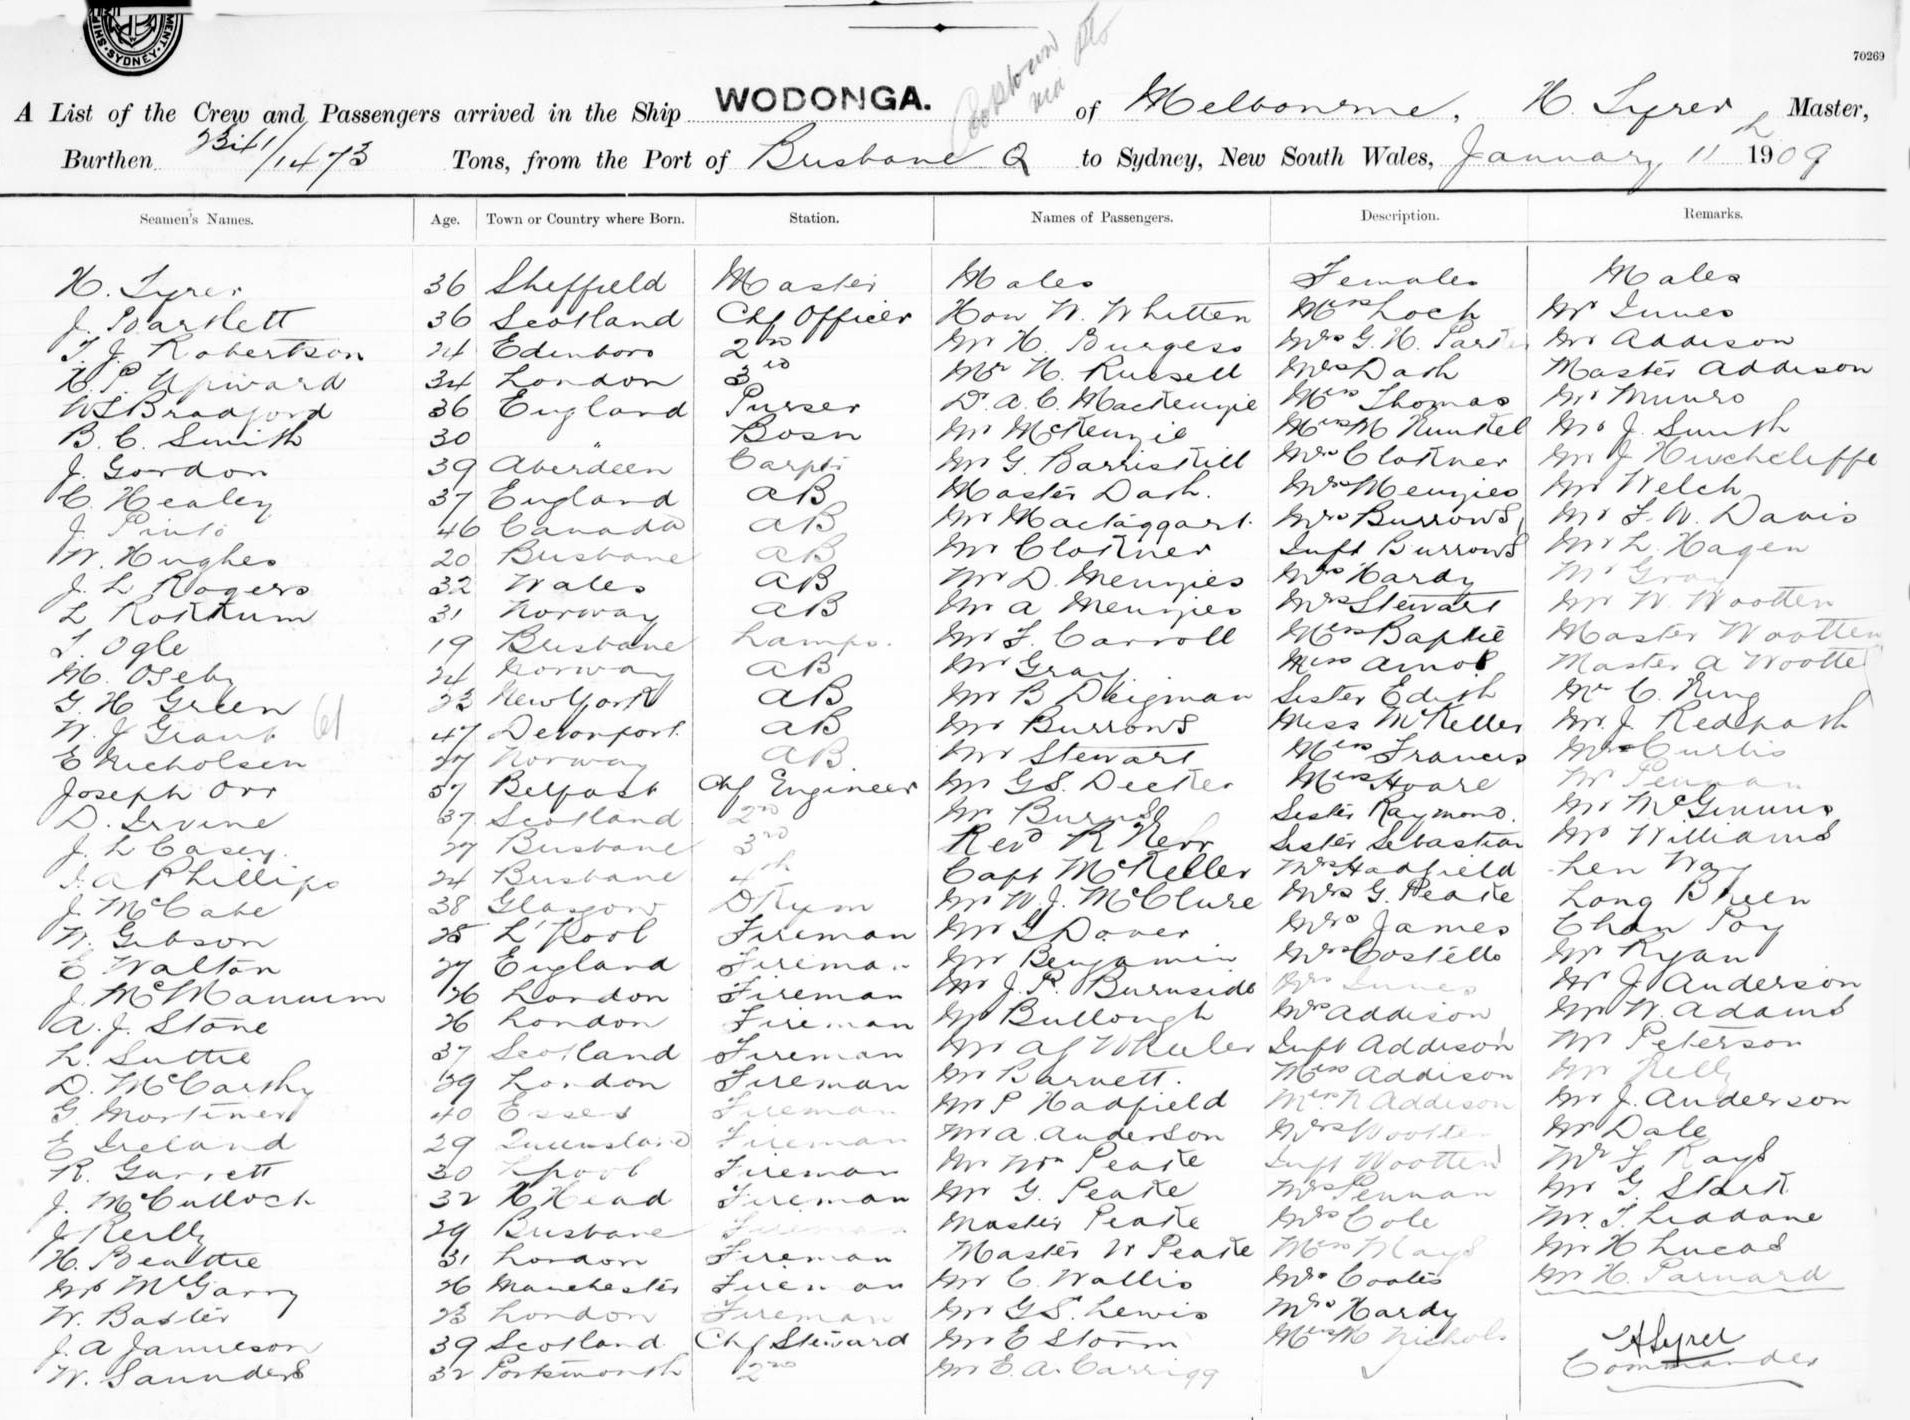 SYDNEY
70269
Cooktown
via pts
A List of the Crew and Passengers arrived in the Ship WODONGA. of Melbourne, H. Tyrer Master,
Burthen 2341/1473 Tons, from the Port of Brisbane Q to Sydney, New South Wales, January 11th 1909
Seamen's Names. Age. Town or Country where Born. Station. Names of Passengers. Description. Remarks.
H. Tyrer 36 Sheffield Master Males Females Males
J. Bartlett 36 Scotland Chf Officer Hon W. Whitten Miss Loch Mr Innes
T. J. Robertson 24 Edinboro 2nd Mr H. Burgess Mrs G. H. Mr Addison
H. P. Upward 34 London 3rd Mr H. Russell Mrs Dash Master Addison
W S Bradford 36 England Purser Dr A. C. MacKenzie Miss Thomas Mr Munro
B. C. Smith 30 " Bosn Mr McKenzie Miss M Kunkel Mr J. Smith
J. Gordon 39 Aberdeen Carptr Mr G. Barriskill Mrs Clotner Mr J Hinchcliffe
C. Healey 37 England AB Master Dash. Mrs Menzies Mr Welch
J. Pinto 46 Canada AB Mr Mactaggart. Mrs Burrows Mr F. W. Davis
W. Hughes 20 Brisbane AB Mr Clotner Inft Burrows Mr L. Hagen
J. L Rogers 32 Wales AB Mr D. Menzies Mrs Hardy Mr Gray
L Rokkum 31 Norway AB Mr A Menzies Mrs Stewart Mr W. Wootten
T. Ogle 19 Brisbane Lamps. Mr F. Carroll Miss Baptie Master Wootten
M. Oseby 24 Norway AB Mr Gray Miss Amos Master A Wootten
G. H Green 23 New York AB Mr B Deigman Sister Edith Mr C. King
W. J Grant 61 47 Devonport. AB Mr Burrows Miss McKeller Mr. J. Redspath
E Nicholsen 27 Norway AB Mr Stewart Miss Francis Mr Curtis
Joseph Orr 57 Belfast Chf Engineer Mr G S. Decker Miss Hoare Mr Pennan
D. Irvine 37 Scotland 2nd Mr Burns Sister Raymond. Mr McGinnis
J. L Casey. 27 Brisbane 3rd Revd R Kerr Sister Sebastian Mr Williams
J. A Phillips 24 Brisbane 4th Capt McKeller Mrs Hadfield Len Way
J. McCabe 38 Glasgow DKymn Mr W. J. McClure Mrs G. Peake Long Bheen
W. Gibson 28 L'Pool Fireman Mr G Dover Mrs James Chan Poy
E Walton 27 England Fireman Mr Benjamin Mrs Costello Mr Ryan
J. McMannum 26 London Fireman Mr J. P. Burnside Mrs Innes Mr J. Anderson
A. J. Stone 26 London Fireman Mr Bullough Mrs Addison Mr W. Adams
L. Suttie 37 Scotland Fireman Mr Wheeler Inft Addison Mr Peterson
D. McCarthy 29 London Fireman Mr Barnett. Miss Addison Mr Kelly
G. Mortimer 40 Essex Fireman Mr P Hadfield Miss N Addison Mr J. Anderson
E Ireland 29 Queensland Fireman Mr A. Anderson Mrs Wootten Mr Dale
R. Garrett 30 Lpool Fireman Mr Wm Peake Inft Wootten Mr F. Kays
J. McCulloch 32 H Head Fireman Mr G. Peake Mrs Pennan Mr G. Stark
J Reilly 29 Brisbane Fireman Master Peake Mrs Cole Mr. T. Liddane
H. Beattie 31 London Fireman Master W Peake Miss Mays Mr H Lucas
McGarry 26 Manchester Fireman Mr C. Wallis Mrs Coates Mr H. Parnard
W. Baxter 23 London Fireman Mr G S. Lewis Mrs Hardy
J. A Jamieson 39 Scotland Chf Steward Mr E Storm Miss M Nichols H Tyrer
W. Saunders 32 Portsmouth 2nd Mr E. A. Carrigg Commander